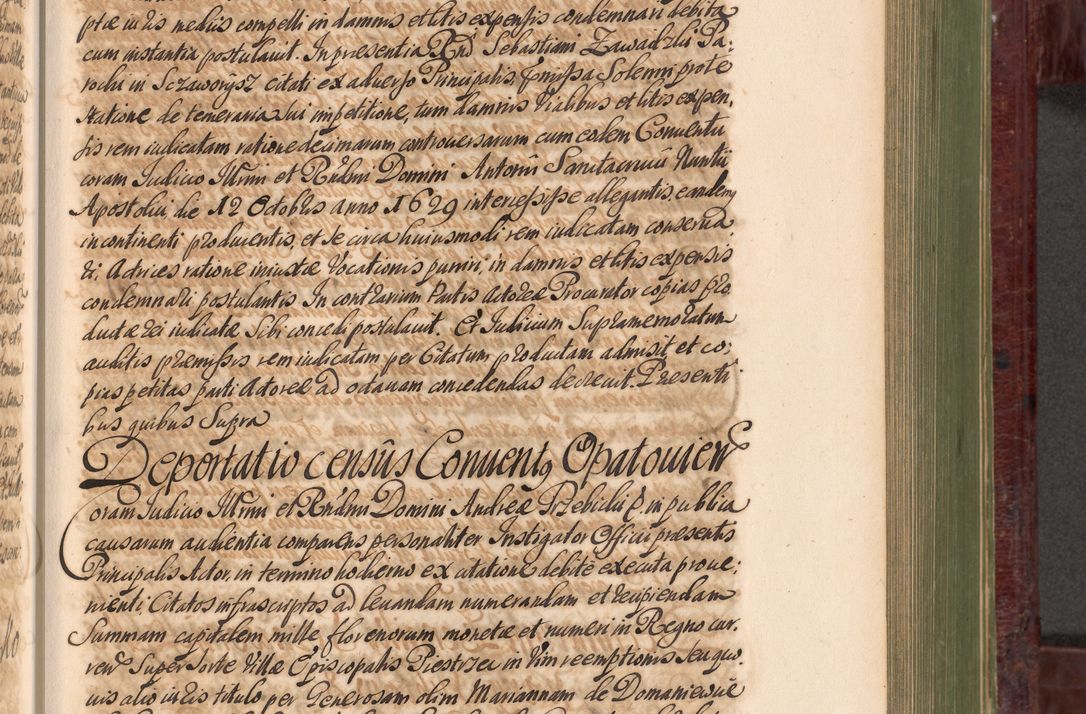 ptæ iuris mediis compelli in damnis et litis expensis condemnari debita
cum instantia postulauit. In præsentia Rñdi Sebastiani Zawadzki Pa:
rochi in Sczaworysz citati ex aduerso Principalis, præmissa Solenni prote
statione de temeraria sui impetitione, tum damnis vialibus et litis expen,
sis rem iudicatam ratione decimarum controuersarum cum eodem Conuentu
coram Iudicio Illrmi et Rñdmi Domini Antonii Santacrucii Nuntii
Apostolici, die 12 Octobris anno 1629 intercessisse allegantis, eandemq
incontinenti producentis, et se circa huiusmodi rem iudicatam conserua
ri: Actrices ratione iniustæ Vocationis puniri, in damnis et litis expensis
condemnari postulantis In contrarium Partis Actoreæ Procurator copias pro
ductæ rei iudicatæ Sibi concedi postulauit. Et Iudicium Supramemoratum
auditis præmissis rem iudicatam per Citatum productam admisit et co:
pias petitas parti Actoreæ ad octauam concedendas decreuit. Præsenti
bus quibus Supra
Deportatio censûs Conuentq Opatouien
Coram Iudicio Illrmi et Rñdmi Domini Andreæ Trzebicki E. in publica
causarum audientia comparens personaliter Instigator Officii præsentis
Principalis Actor, in termino hodierno ex citatione debitè executa proue:
nienti, Citatos infrascriptos ad leuandam numerandam et recipiendam
Summam capitalem mille florenorum monetæ et numeri in Regno cur.
ren Super Sorte Villæ Episcopalis Piestrzec in Vim reemptionis seu quo.
uis alio iuris titulo per Generosam olim Mariannam de Domaniewie